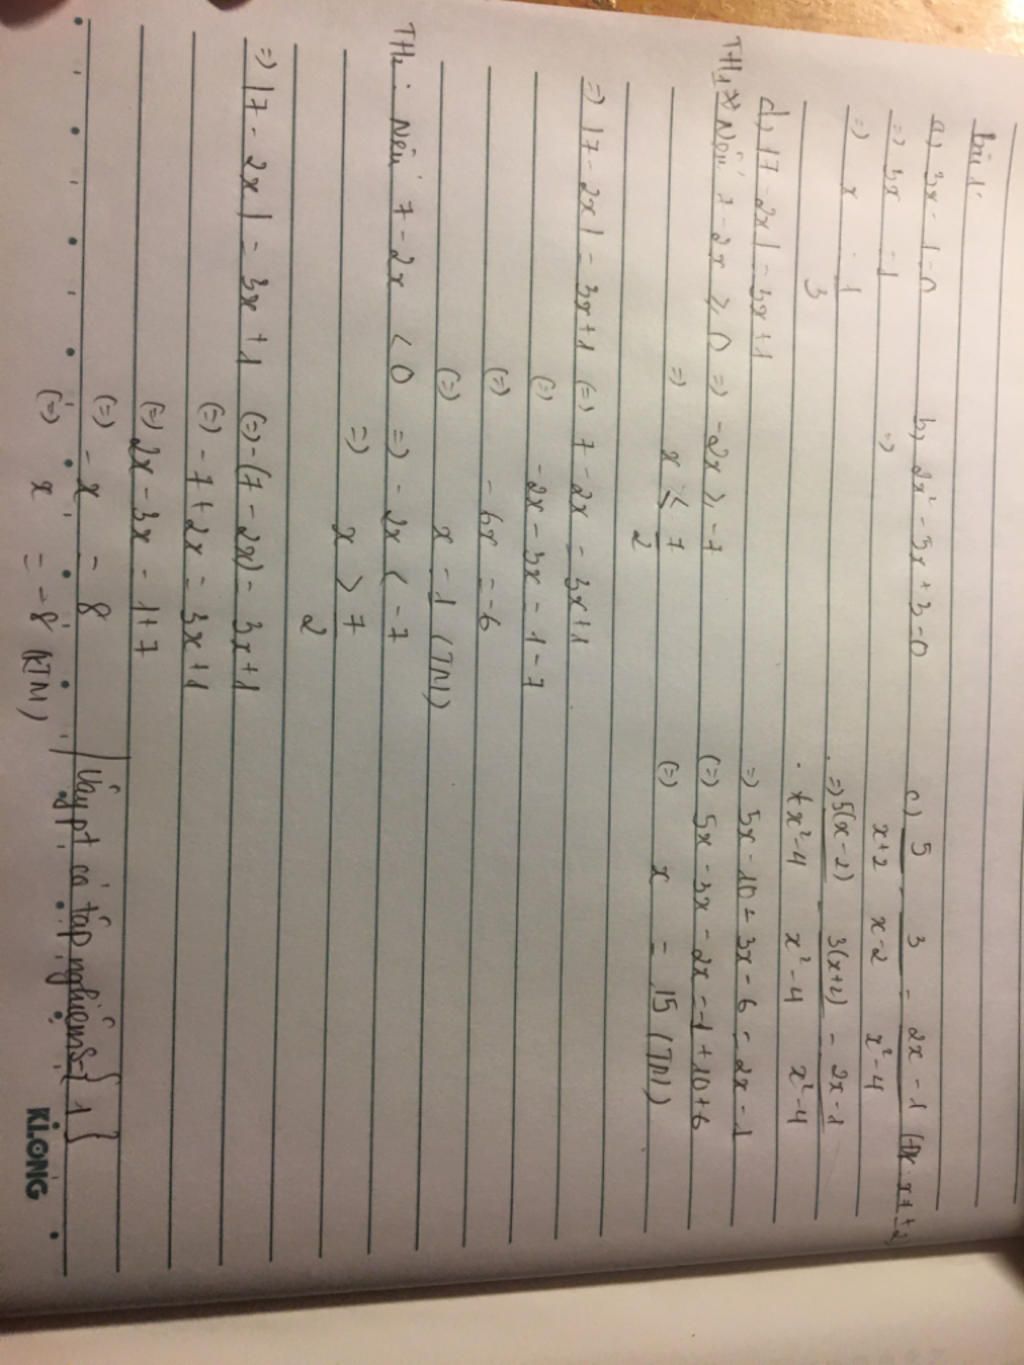 bài 1:
a) 3x - 1 = 0
=> 3x = 1
=> x = 1/3
b) 2x² - 5x + 3 = 0
=>
c) 5/(x+2) - 3/(x-2) = (2x - 1)/(x² - 4) (ĐK: x ≠ ±2)
=> 5(x-2)/(x²-4) - 3(x+2)/(x²-4) = (2x-1)/(x²-4)
=> 5x - 10 - 3x - 6 = 2x - 1
(=) 5x - 3x - 2x = -1 + 10 + 6
(=) x = 15 (TM)
d) |7 - 2x| = 3x + 1
TH1: Nếu 7 - 2x ≥ 0 => -2x ≥ -7
=> x ≤ 7/2
=> |7 - 2x| = 3x + 1 (=) 7 - 2x = 3x + 1
(=) -2x - 3x = 1 - 7
(=) -5x = -6
(=) x = 1 (TM)
TH2: Nếu 7 - 2x < 0 => -2x < -7
=> x > 7/2
=> |7 - 2x| = 3x + 1 (=) -(7 - 2x) = 3x + 1
(=) -7 + 2x = 3x + 1
(=) 2x - 3x = 1 + 7
(=) -x = 8
(=) x = -8 (KTM)
Vậy pt có tập nghiệm S={1}
KLONG